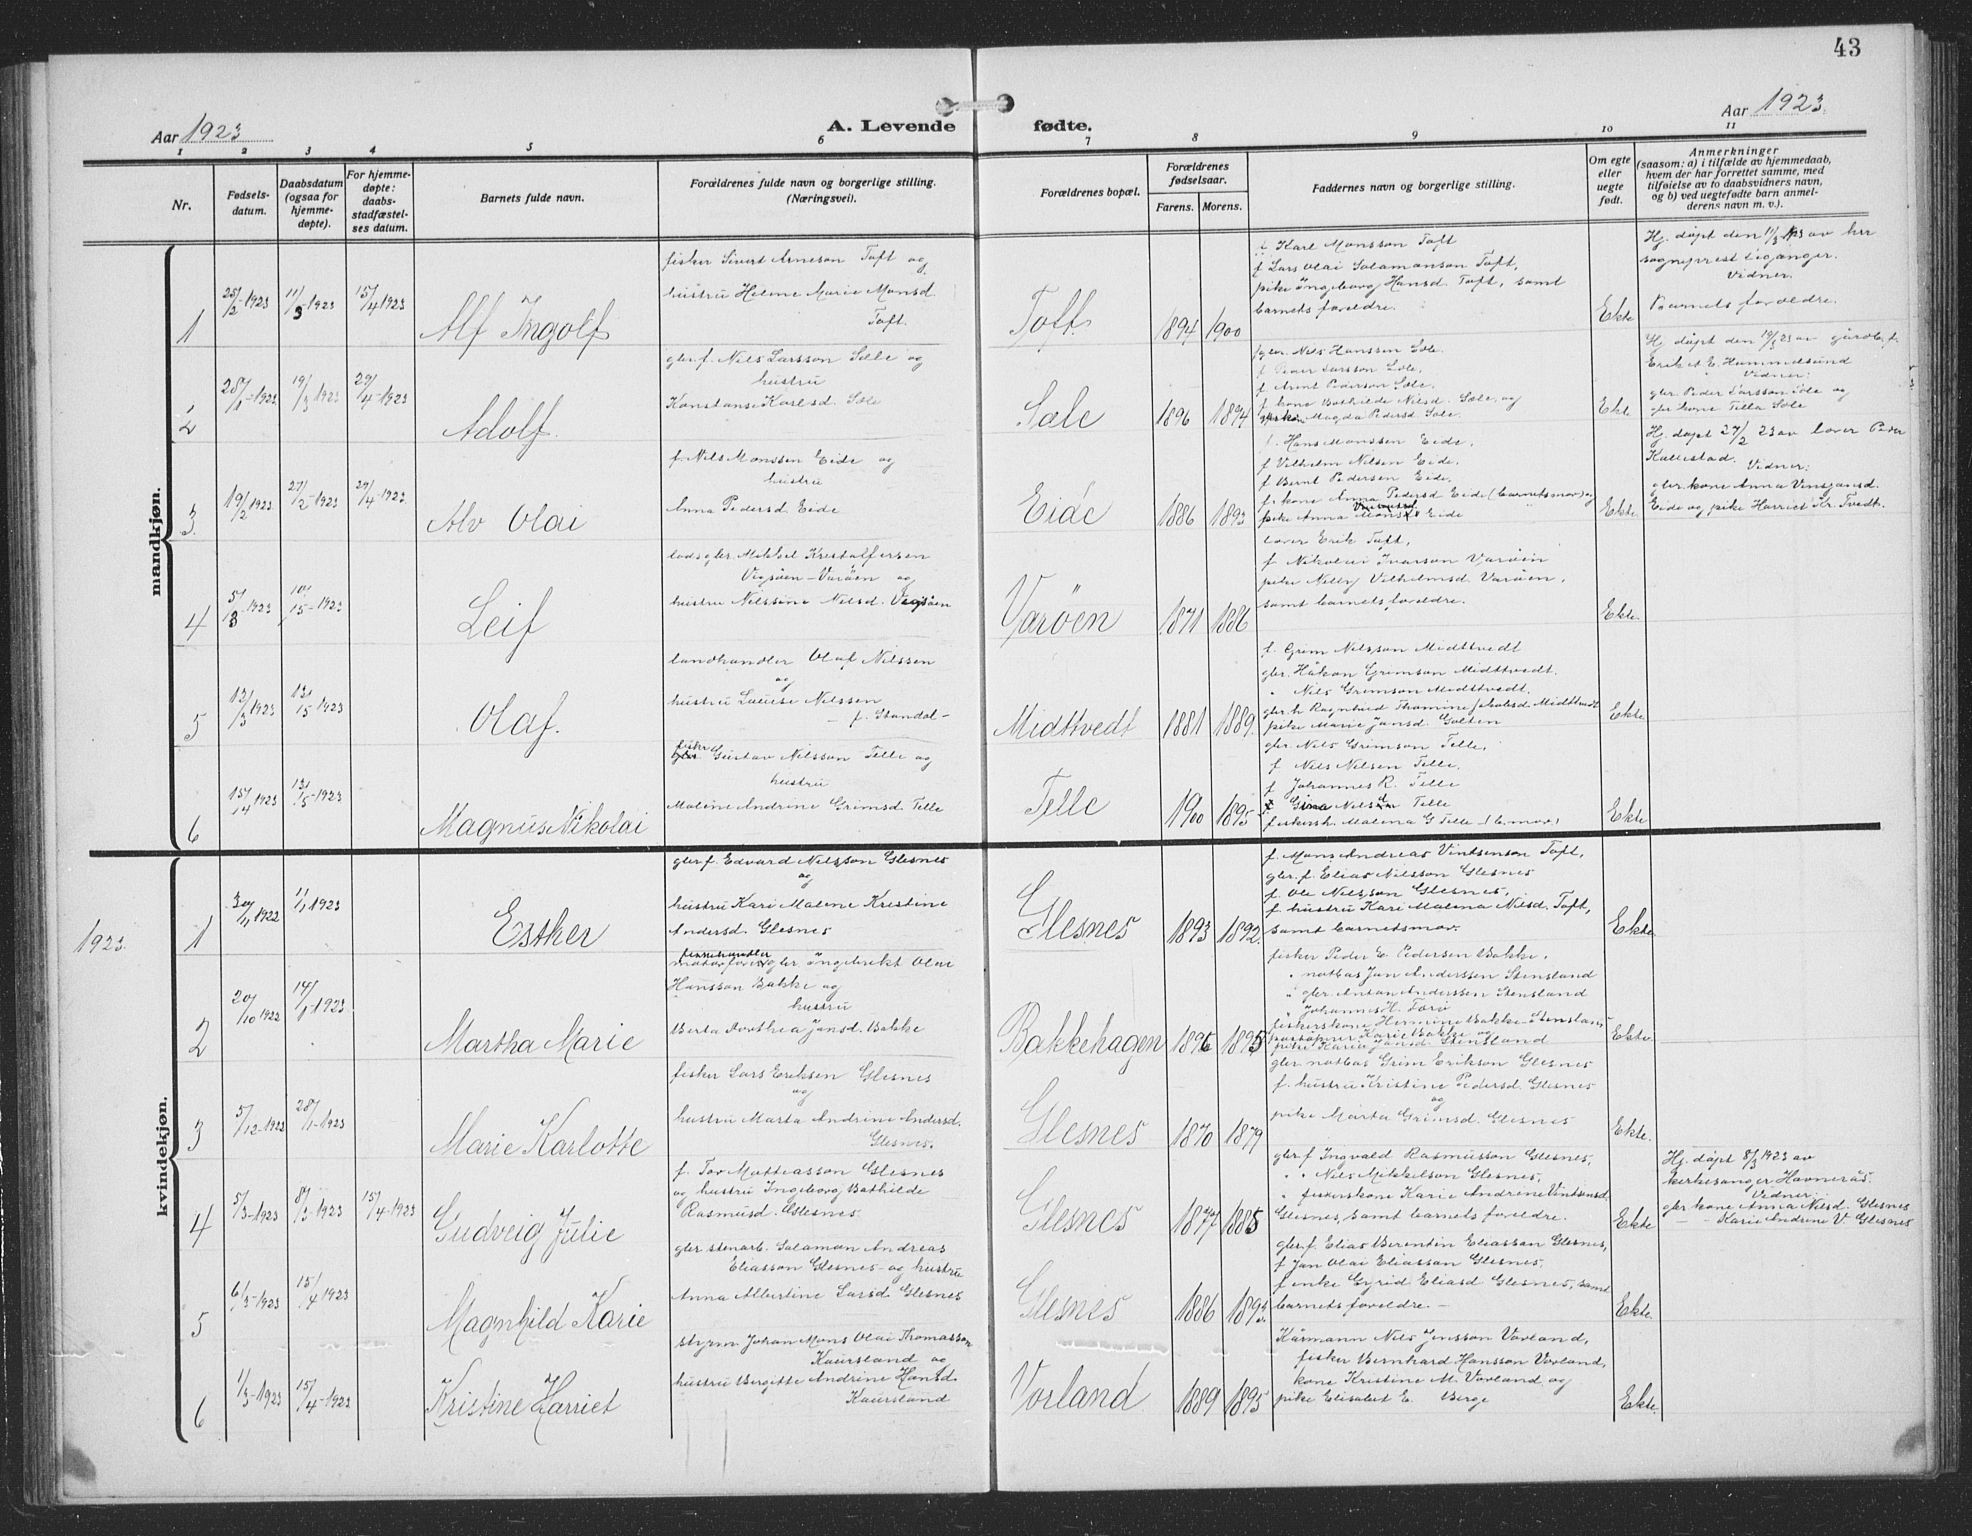 43
Aar 1923
A. Levende fødte.
Aar 1923
1 2 3 4 5 6 7 8 9 10 11
Nr.
Fødsels-
datum.
Daabsdatum
(ogsaa for
hjemme-
døpte).
For hjemme-
døpte:
daabs-
stadfæstel-
ses datum.
Barnets fulde navn.
Forældrenes fulde navn og borgerlige stilling.
(Næringsvei).
Forældrenes bopæl.
Forældrenes
fødselsaar.
Farens. Morens.
Faddernes navn og borgerlige stilling.
Om egte
eller
uegte
født.
Anmerkninger
(saasom: a) i tilfælde av hjemmedaab,
hvem der har forrettet samme, med
tilføielse av to daabsvidners navn,
og b) ved uegtefødte barn anmel-
derens navn m. v.).
mandkjøn.
1
25/2-1923
11/3-1923
15/4 1923
Alf Ingolf
fisker Sivert Arneson Toft og
hustru Helene Marie Monsd.
Toft.
Toft.
1894 1900
f Karl Monsson Toft
f Lars Olai Salamonson Toft,
pike Ingeborg Hansd. Toft, samt
barnets foreldre.
Ekte
Hj. døpt den 11/3 1923 av hrr
sogneprest Leganger.
Vidner.
Barnets foreldre.
2
25/1-1923
19/3 1923
29/4-1923
Adolf.
gbr. f. Nils Larsson Sæle og
hustru
Konstanse Karlsd. Sæle
Sæle
1896 1894
gbr. Nils Hanssen Sæle.
f Peder Larsson Sæle.
f. Arent Pederson Sæle.
f kone Bothilde Nilsd. Sæle, og
Magda Pedersd Sæle.
Ekte
Hj døpt den 19/3 23 av
Erik A E Hummelsund
Vidner:
gbr. Peder Larsson Sæle og
gbr kone Tilla Sæle
3
19/2 1923
27/2-1923
29/4-1923
Alv Olai
f. Nils Monssen Eide og
hustru
Anna Pedersd Eide
Eide
1886 1893
f. Hans Monssen Eide.
f Vilhelm Nilsen Eide.
f Bernt Pedersen Eide.
f. kone Anna Pedersd Eide (barnets mor) og
pike Anna Eide
Ekte
Hj. døpt 27/2 23 av lærer Peder
Kallestad. Vidner:
gbr. kone Anna Vinsjansd.
Eide og pike Harriet Kr. Tvedt.
4
5/3-1923
10/5-1923
Leif
lods gbr. Mikkel Kristoffersen
Vegsöen-Varöen og
hustru Nilssine Nilsd. Vegsöen
Varöen
1871 1886
lærer Erik Toft,
f Nikolai Ivarson Varöen
pike Nelly Vilhelmsd. Varöen,
samt barnets foreldre.
Ekte
5
12/3 1923
13/5 1923
Olaf.
landhandler Olaf Nilssen
og
hustru Lauise Nilssen
— f. Standal —
Midttvedt
1881 1889.
f. Grim Nilsson Midttvedt
gbr. Håkon Grimson Midttvedt.
" Nils Grimson Midttvedt.
gbr. h Ragnhild Thomine Jakobsd. Midttvedt
pike Marie Jansd. Golten
Ekte
6
15/4 1923
13/5-1923
Magnus Nikolai
fisker Gustav Nilsson Telle og
hustru
Malene Andrine Grimsd. Telle
Telle
1900 1895
gbr. Nils Grimson Telle,
f Nils Nilsen Telle.
f Johannes R. Telle
f Gina Nilsd Telle
fiskersh. Malena G Telle (b. mor)
Ekte
kvindekjøn.
1923.
1
30/11 1922
1/1 1923
Esther
gbr. f. Edvard Nilsson Glesnes
og
hustru Kari Malene Kristine
Andersd. Glesnes
Glesnes
1893 1892.
f. Mons Andreas Vintsenson Toft,
gbr. f Elias Nilsson Glesnes
f. Ole Nilsson Glesnes,
f. hustru Kari Malena Nilsd. Toft,
samt barnetsmor.
Ekte
2
20/10 1922
14/1-1923
Martha Marie
fiskehandler
gbr Ingebrikt Olai
Hansson Bakke og
hustru
Berta Dorthea Jansd. Bakke
Bakkehagen
1896 1895
fisker Peder E. Pedersen Bakke,
" notbas Jan Anderssen Stensland
" gbr. Anton Anderssen Stensland
" Johannes H. Forö
fiskerskone Hermine Bakke-Stensland
Karie Bakke og
pike Karie Jansd. Stensland
Ekte
3
5/12-1922
28/1-1923
Marie Karlotte
fisker Lars Eriksen Glesnes
og
hustru Marta Andrine Andersd.
Glesnes.
Glesnes
1870 1879
gbr. notbas Grim Erikson Glesnes
f. hustru Kristine Pedersd. Glesnes
og
pike Marta Grimsd. Glesnes
Ekte.
4
5/3-1923
8/3-1923
15/4-1923
Gudveig Julie
f. Tor Mattiasson Glesnes
og hustru Ingeborg Bathilde
Rasmusd. Glesnes.
Glesnes
1877 1885
gbr. f Ingvald Rasmusson Glesnes,
" " Nils Mikkelson Glesnes,
" fiskerskone Karie Andrine Vintsensd.
Glesnes, samt barnets foreldre.
Ekte
Hj. døpt 8/3 1923 av
kirkesanger Havnerås.
Vidner
gbr kone Anna Nilsd. Glesnes
— — Karie Andrine V. Glesnes
5
6/3-1923
15/4 1923
Magnhild Karie
gbr stenarb. Salamon Andreas
Eliasson Glesnes og hustru
Anna Albertine Larsd. Glesnes
Glesnes
1886 1893.
gbr. f. Elias Berentin Eliasson Glesnes,
f Jan Olai Eliasson Glesnes,
f enke Gyrid Eliasd Glesnes, samt
barnets foreldre. —
Ekte
6
1/3-1923
15/4-1923
Kristine Harriet
styrm Johan Mons Olai Thomasson
Kaursland og
hustru Bergitte Andrine Hansd.
Kaursland
Vorland
1889 1895
Kårmann Nils Jensson Vorland,
fisker Bernhard Hansson Vorland,
kone Kristine M. Vorland og
pike Elisabet E. Berge
Ekte.